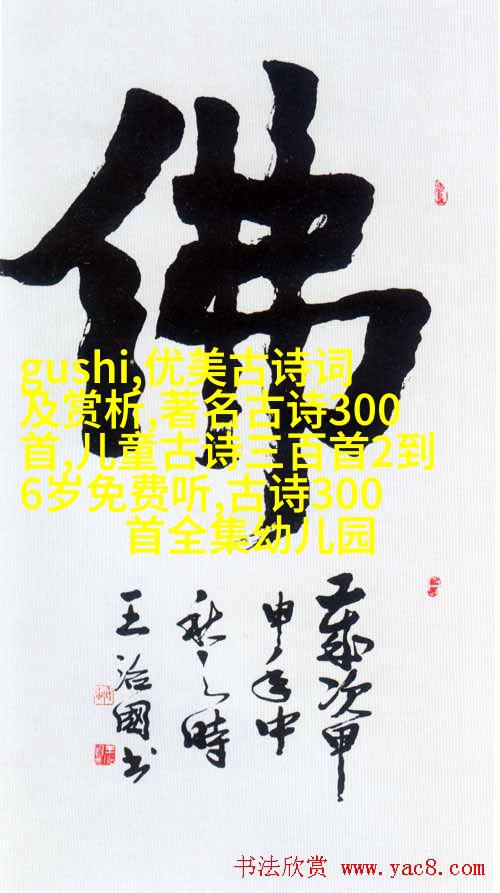 佛
gushi,优美古诗词
及赏析,著名古诗300
首,儿童古诗三百首2到
6岁免费听,古诗300
首全集幼儿园
歲次甲
申年中
秋之時
王治國书
书法欣赏 www.yac8.com